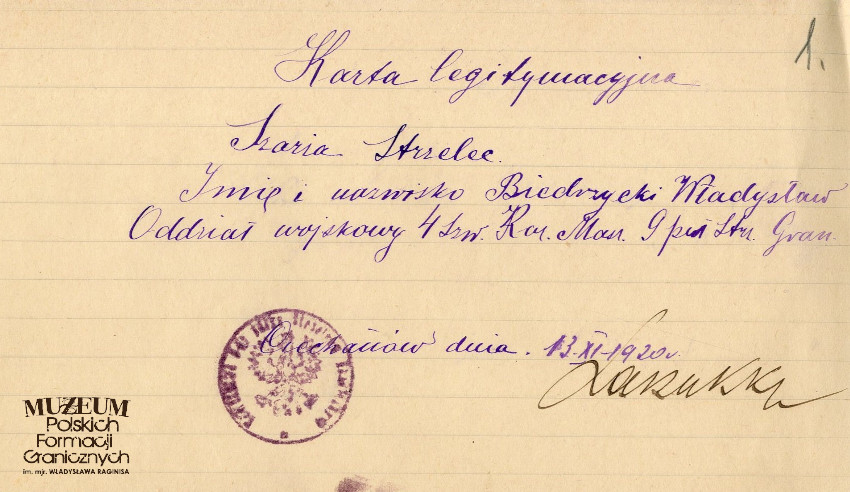 1.
Karta legitymacyjna
Szarża Strzelec.
Imię i nazwisko Biedrzycki Władysław
Oddział wojskowy 4 Szw. Kar. Masz. 9 Str. Gran.
Ciechanów dnia. 13-XI-1920 r.
MUZEUM
Polskich
Formacji
Granicznych
im. mjr. WŁADYSŁAWA RAGINISA